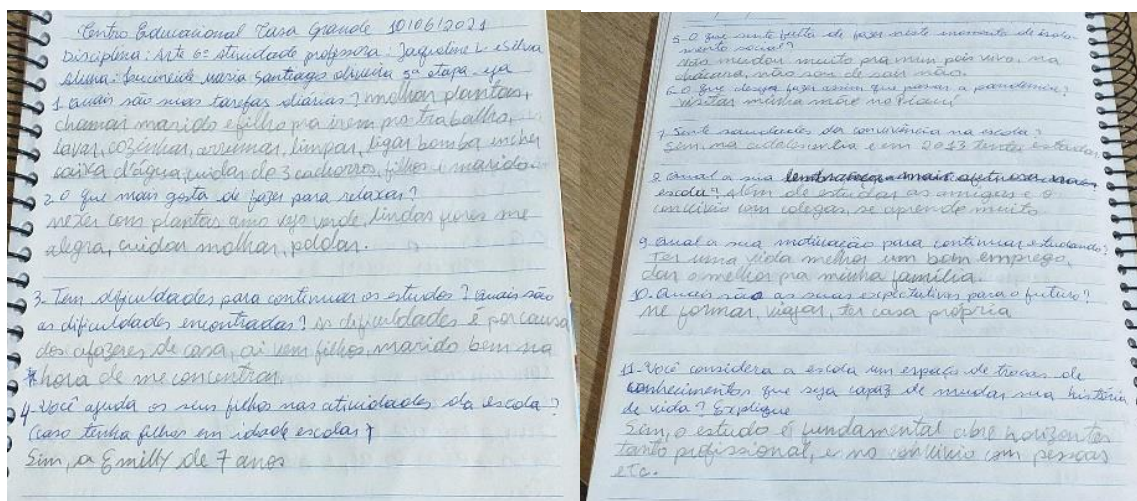 Centro Educacional Casa Grande 10/06/2021
Disciplina: Arte 6ª atividade professora: Jaqueline L. eSilva
Aluna: Lucineide maria Santiago oliveira 5ª etapa-eja
1. quais são suas tarefas diárias? molhar plantas,
chamar marido e filho pra irem pro trabalho,
lavar, cozinhar, arrumar, limpar, ligar bomba encher
caixa d'água, cuidar de 3 cachorros, filhos e marido.
2. O que mais gosta de fazer para relaxar?
mexer com plantas amo vejo verde, lindas flores me
alegra, cuidar molhar, poldar.
3- Tem dificuldades para continuar os estudos? quais são
as dificuldades encontradas? As dificuldades é por causa
dos afazeres de casa, ai vem filhos, marido bem na
hora de me concentrar.
4- Você ajuda os seus filhos nas atividades da escola?
(caso tenha filhos em idade escolar)
Sim, a Emilly de 7 anos
5-O que sente falta de fazer neste momento de isola-
mento social?
não mudou muito pra mim pois vivo, na
chácara, não sou de sair não.
6-O que deseja fazer assim que passar a pandemia?
visitar minha mãe no Piauí
7. Sente saudades da convivência na escola?
Sim, na em 2013 tentei estudar
8. qual a sua lembrança mais afetuosa na
escola? além de estudar as amigas e o
convívio com colegas, se aprende muito
9. qual a sua motivação para continuar estudando?
Ter uma vida melhor um bom emprego,
dar o melhor pra minha família.
10. quais são as suas expectativas para o futuro?
me formar, viajar, ter casa própria
11- Você considera a escola um espaço de trocas de
conhecimentos que seja capaz de mudar sua história
de vida? Explique
Sim, o estudo é fundamental abre horizontes
tanto profissional, e no convívio com pessoas
etc.